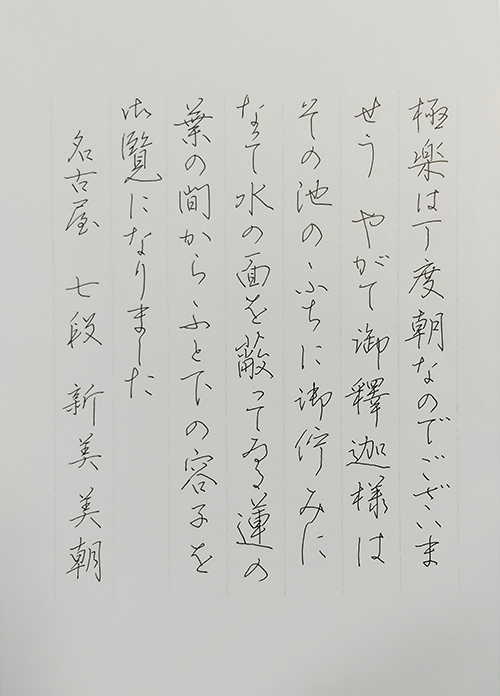 極楽は丁度朝なのでございま
せう やがて御釋迦様は
その池のふちに御佇みに
なつて水の面を蔽つてゐる蓮の
葉の間からふと下の容子を
御覧になりました
名古屋 七段 新美美朝